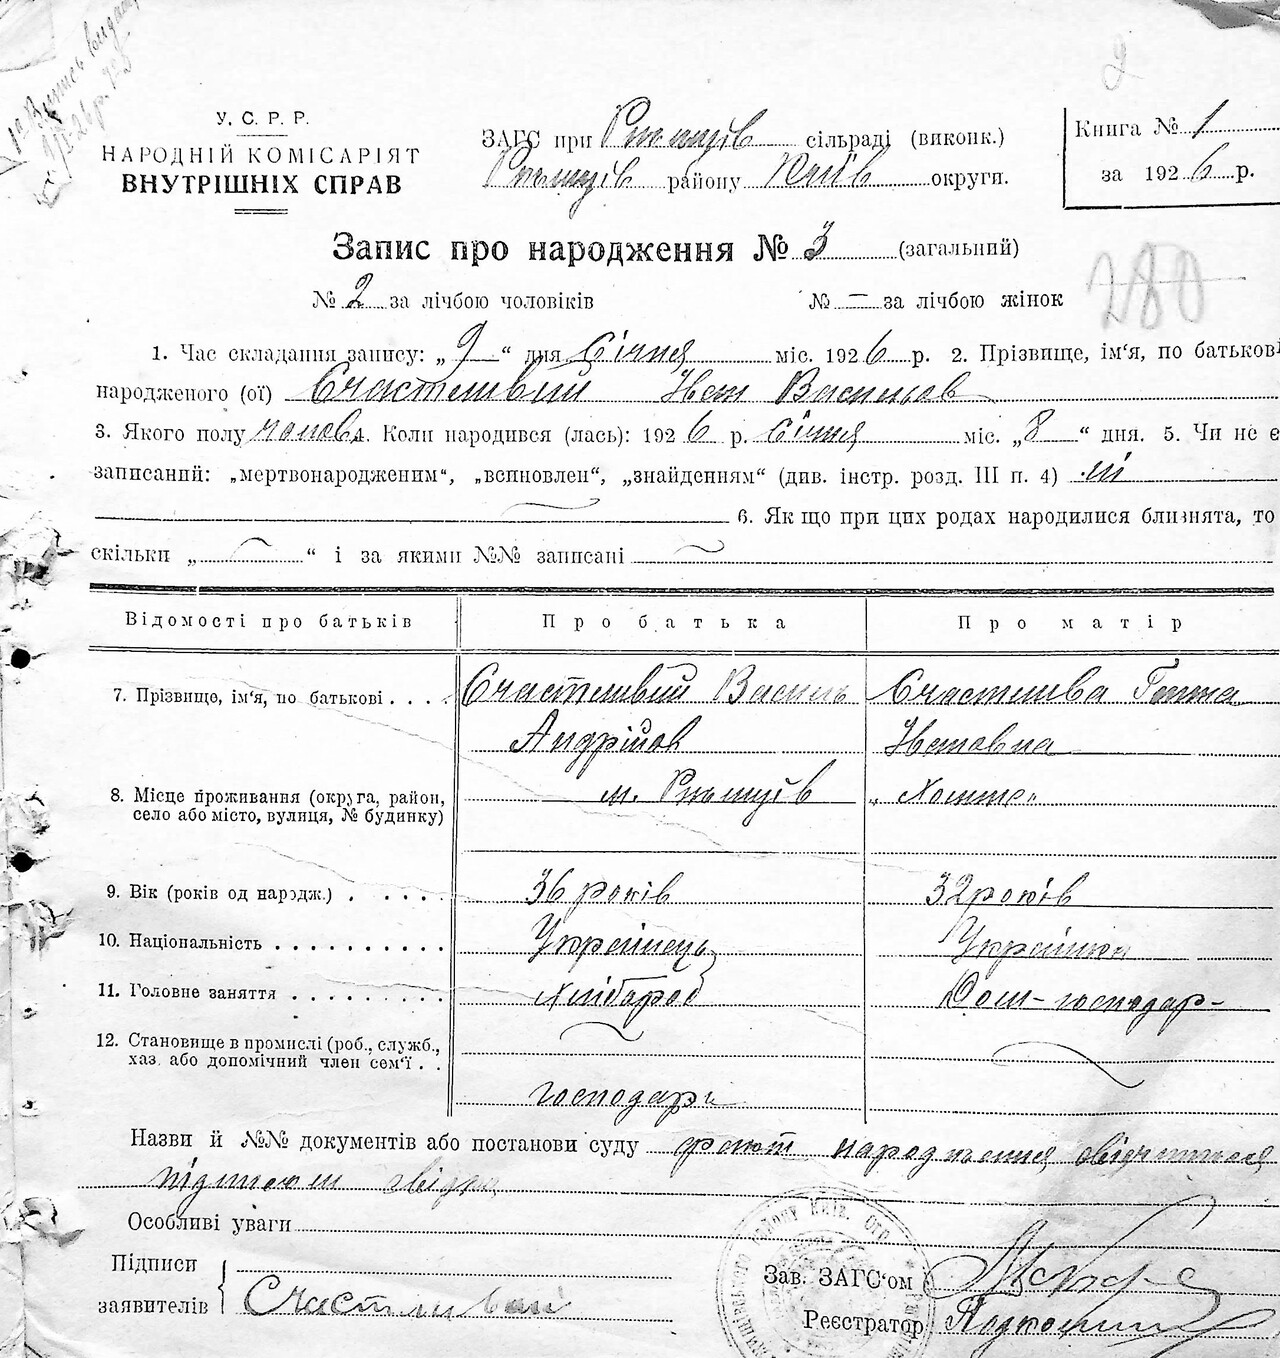 У. С. Р. Р.
НАРОДНІЙ КОМІСАРІЯТ
ВНУТРІШНІХ СПРАВ
ЗАГС при Ржищів сільраді (виконк.)
Ржищів району Київ округи.
Книга № 1
за 1926 р.
Запис про народження № 3 (загальний)
№ 2 за лічбою чоловіків № — за лічбою жінок
280
1. Час складання запису: „ 9 “ дня Січня міс. 1926 р. 2. Прізвище, ім‘я, по батькові
народженого (ої) Счастливий Іван Васильов
3. Якого полу чолов. Коли народився (лась): 1926 р. Січня міс. „8“ дня. 5. Чи не є
записаний: „мертвонародженим“, „всиновлен“, „знайденням“ (див. інстр. розд. III п. 4) ні
6. Як що при цих родах народилися близнята, то
скільки „ “ і за якими №№ записані
Відомості про батьків Про батька Про матір
7. Прізвище, ім‘я, по батькові Счастливий Василь Счастлива Ганна
Андрійов Івановна
8. Місце проживання (округа, район, м. Ржищів
село або місто, вулиця, № будинку)
9. Вік (років од народж.) 36 років 32 років
10. Національність Українець Українка
11. Головне заняття Хлібароб Дом-господар-
12. Становище в промислі (роб., служб.,
хаз. або допомічний член сем‘ї
господарь
Назви й №№ документів або постанови суду факт народження свідчиться
підписом свідка
Особливі уваги
Підписи
заявителів Счастливий
Зав. ЗАГС‘ом
Реєстратор